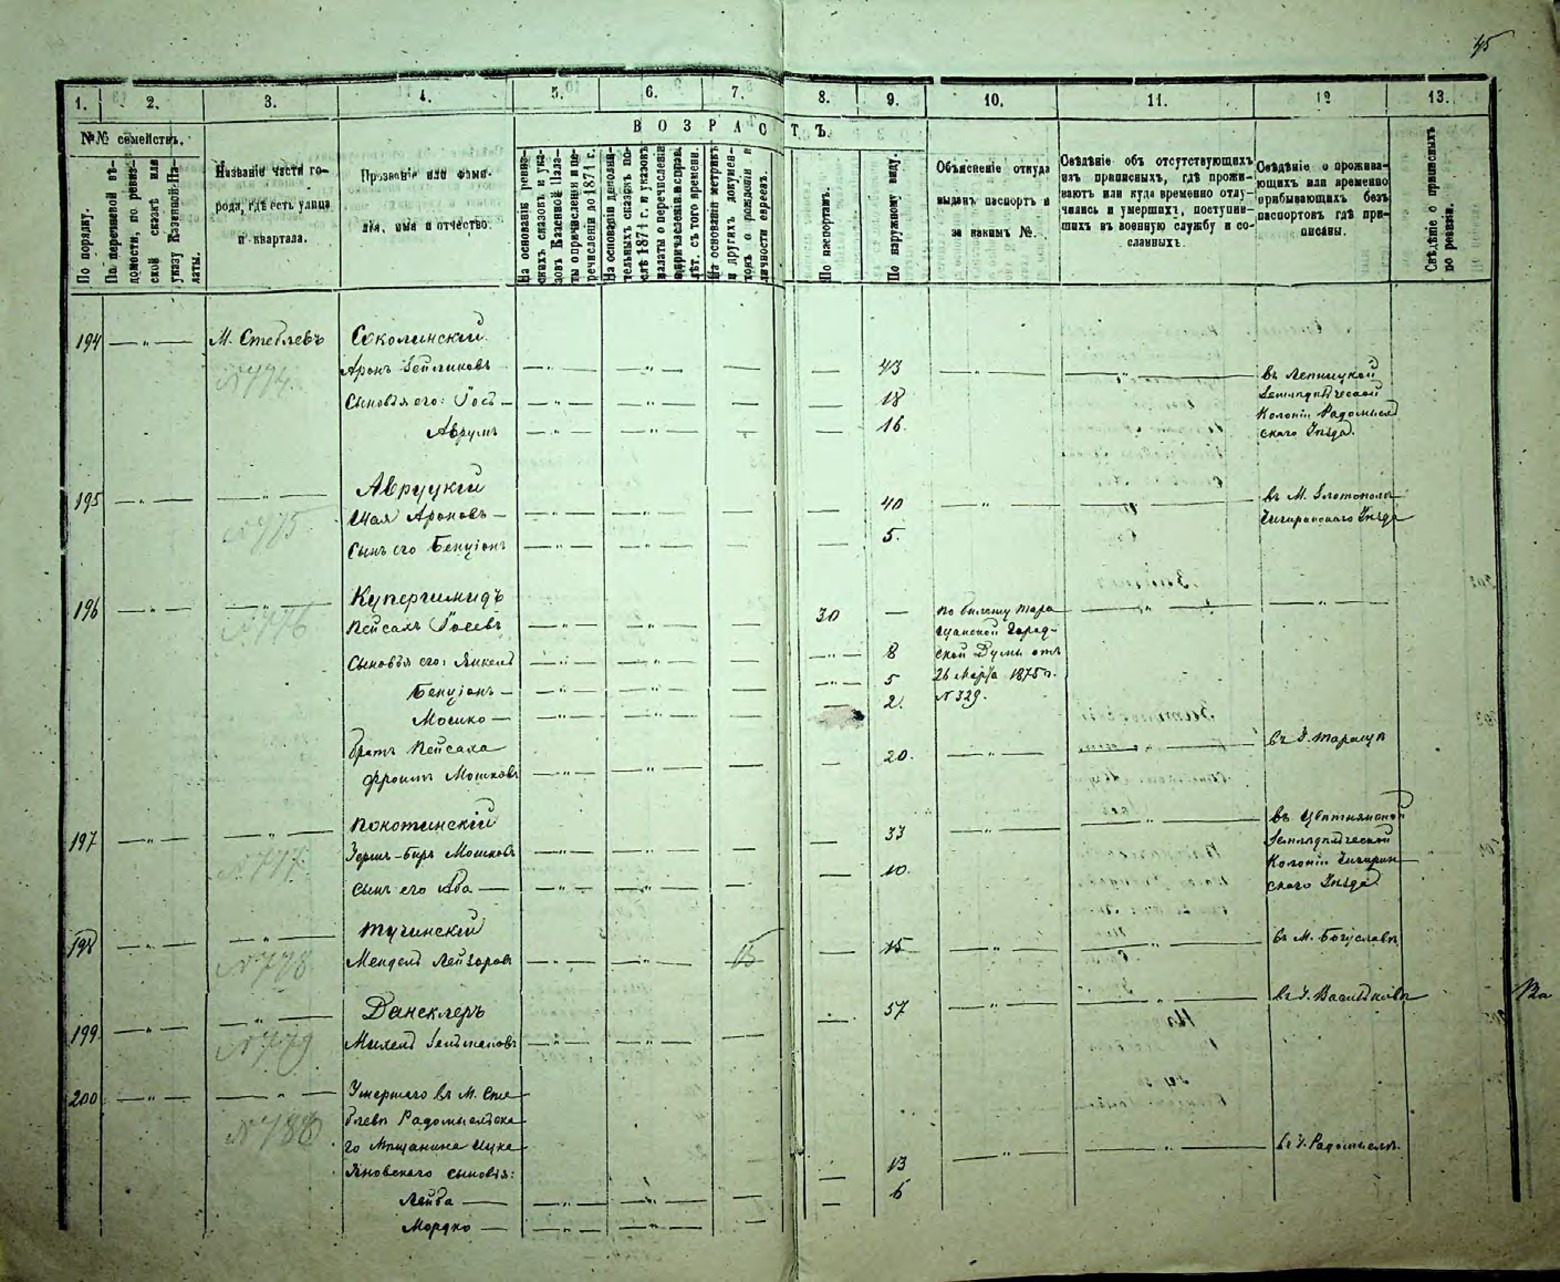 45
1. 2. 3. 4. 5. 6. 7. 8. 9. 10. 11. 12 13.
№№ семействъ.
По порядку.
По паречневой вѣдомости, по ревизской сказкѣ или указу Казенной Палаты.
Названіе части города, гдѣ есть улица и квартала.
Прозваніе или фамилія, имя и отчество.
ВОЗРАСТЪ.
На основаніи ревизскихъ сказокъ и указовъ Казенной Палаты о причисленіи и перечисленіи до 1874 г.
На основаніи дополнительныхъ сказокъ послѣ 1874 г. и указовъ палаты о перечисленіи и причисленіи исправ. лѣт. съ того времени.
На основаніи метрикъ и другихъ документовъ о рожденіи и личности евреевъ.
По паспортамъ.
По наружному виду.
Объясненіе откуда выданъ паспортъ и за какимъ №.
Свѣдѣніе объ отсутствующихъ изъ приписныхъ, гдѣ проживаютъ или куда временно отлучились и умершихъ, поступившихъ въ военную службу и сосланныхъ.
Свѣдѣніе о проживающихъ или временно прибывающихъ безъ паспортовъ гдѣ приписаны.
Свѣдѣніе о приписныхъ по ревизіи.
194 — „ — М. Стеблевъ Соколинскій
№774.
Аронъ Зейликовъ — „ — — „ — — — 43 — „ — — „ — въ Лепницкой
Сыновья его: Іось — — „ — — „ — — — 18 Земледѣльческой
Аврумъ — „ — — „ — — — 16. Колоніи Радомысль
скаго Уѣзда.
195 — „ — — „ — Авруцкій
№775.
Шая Ароновъ — — „ — — „ — — — 40 — „ — — „ — въ М. Златополь
Сынъ его Бенціонъ — „ — — „ — — — 5. Чигиринскаго Уѣзда
196 — „ — — „ — Купершмидъ
№776
Пейсахъ Іосевъ — „ — — „ — — 30 — по билету Тара — „ — — „ —
щанской Город-
Сыновья его: Янкель — „ — — „ — — — „ — 8 ской Думы отъ
Бенціонъ — — „ — — „ — — — „ — 5 26 Марта 1875 г.
Мошко — — „ — — „ — — — 2. № 329.
Братъ Пейсаха
Фроимъ Мошковъ — „ — — „ — — — 20. — „ — — „ — въ г. Таращѣ
197 — „ — — „ — Покотинскій
№777.
Зершъ-Беръ Мошковъ — „ — — „ — — — 33 — „ — — „ — въ Цвѣтнянской
Сынъ его Аба — — „ — — „ — — — 10. Земледѣльческой
Колоніи Чигирин
скаго Уѣзда.
198 — „ — — „ — Тучинскій
№778.
Мендель Лейзоровъ — „ — — „ — 15 — 15 — „ — — „ — въ М. Богуславѣ
199 — „ — — „ — Дансклеръ
№779
Михель — „ — — „ — — — 57 — „ — — „ — въ г. Васильковѣ
200 — „ — — „ — Умершаго въ М. Сте
№780
блевѣ Радомысльска
го Мѣщанина Ицка
Яновскаго сыновья:
Лейба — — „ — — „ — — — 13 — „ — — „ — въ г. Радомыслѣ.
Мордко — — „ — — „ — — — 6